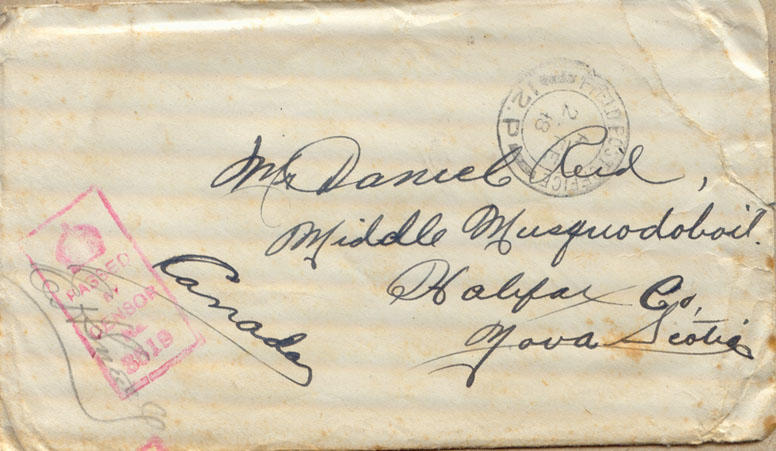 FIELD POST OFFICE
12.P
2
18
Mr Daniel Reid,
Middle Musquodoboit.
Halifax Co,
Nova Scotia
Canada
PASSED
BY
CENSOR
No
3818